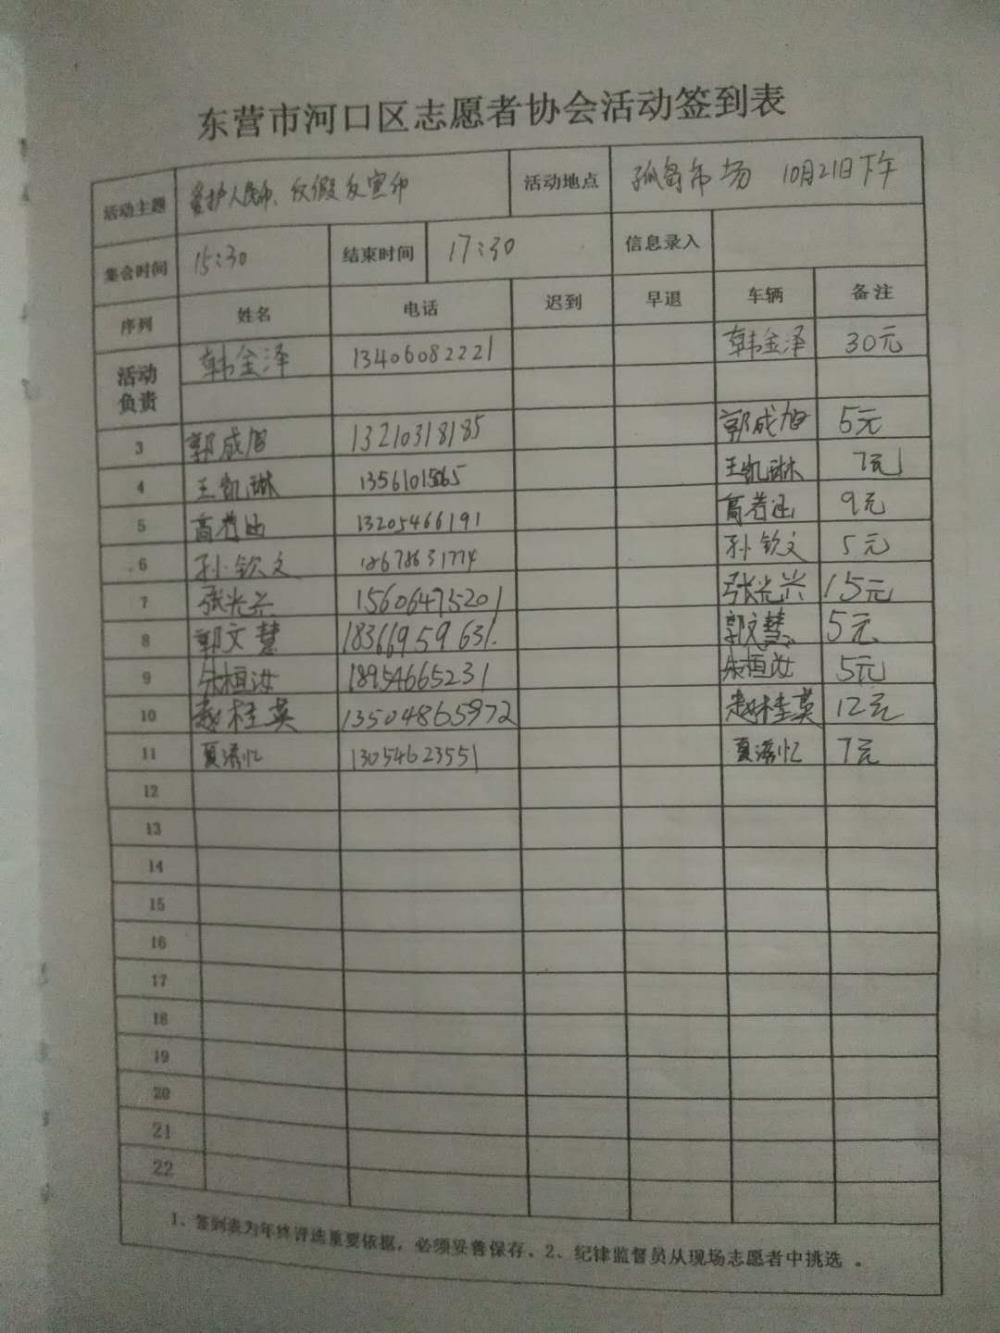 东营市河口区志愿者协会活动签到表
活动主题 爱护人民币、仅假反宣币 活动地点 孤岛市场 10月21日下午
集合时间 15:30 结束时间 17:30 信息录入
序列 姓名 电话 迟到 早退 车辆 备注
活动负责 韩金泽 13406082221 韩金泽 30元
3 郭成旭 13210318185 郭成旭 5元
4 王凯琳 13561015865 王凯琳 7元
5 高若涵 13205466191 高若涵 9元
6 孙钦文 18678631774 孙钦文 5元
7 张光兴 15606475201 张光兴 15元
8 郭文慧 18366959631. 郭文慧 5元
9 朱桓汝 18954665231 朱桓汝 5元
10 赵桂英 13504865972 赵桂英 12元
11 夏忆 13054623551 夏忆 7元
12
13
14
15
16
17
18
19
20
21
22
1、签到表为年终评选重要依据，必须妥善保存。2、纪律监督员从现场志愿者中挑选。